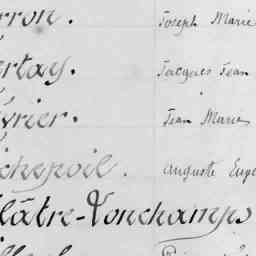 rron. Joseph Marie
ertay. Jacques Jean
évrier. Jean Marie
chepoil. Auguste Eugè
lâtre-Vonchamps